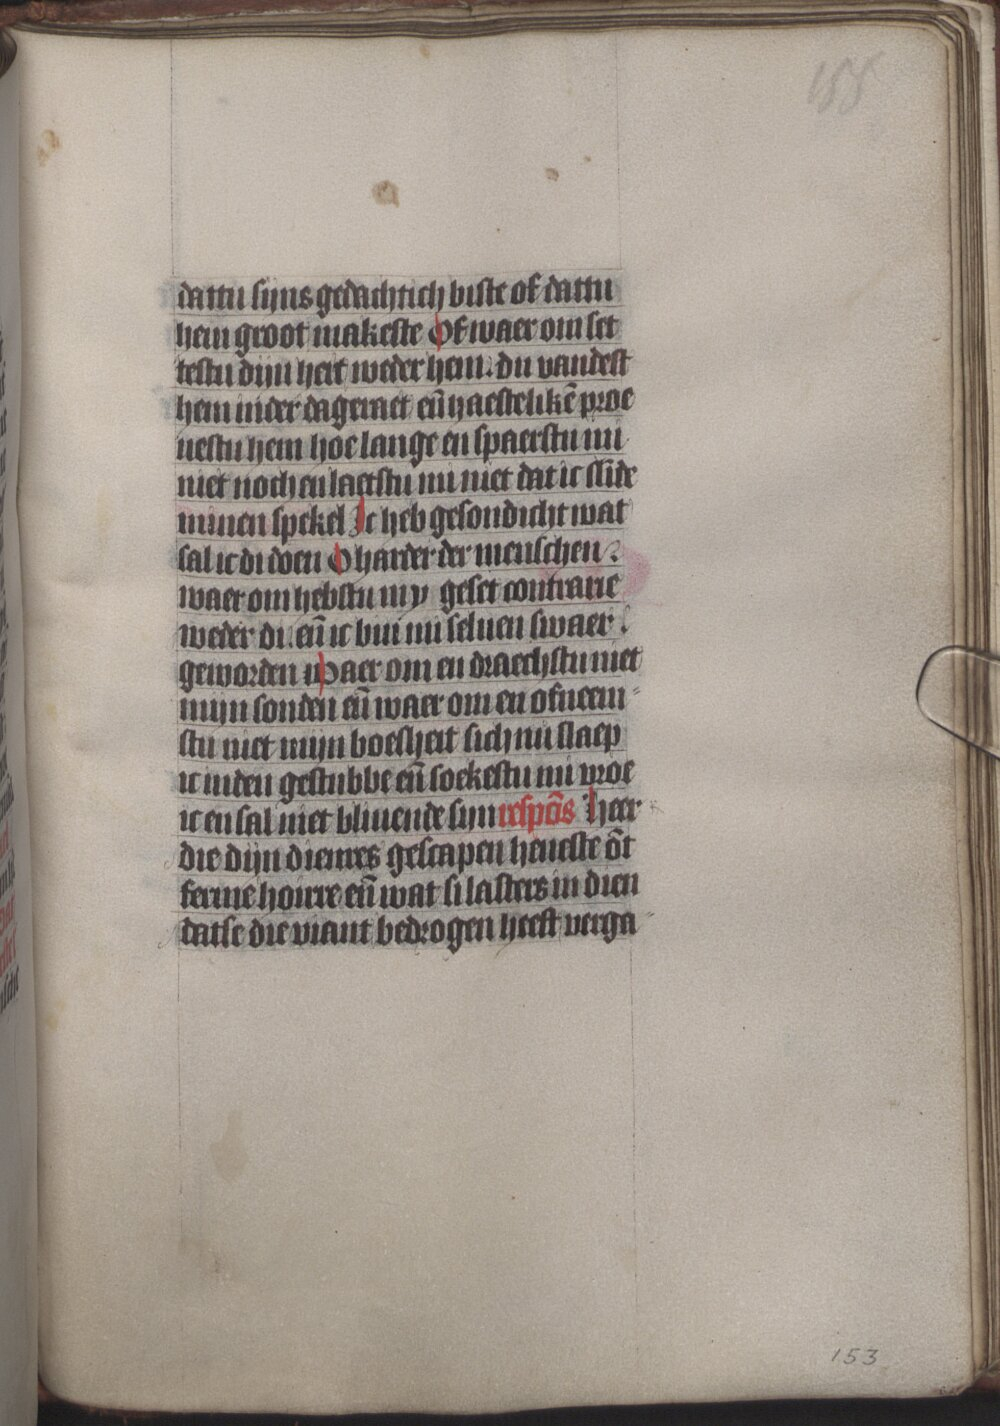 155
dattu sijns gedachtich biste of dattu
hem groot makeste Of waer om set
testu dijn hert weder hem. du vandest
hem in der dageraet eñ haestelikē proe
uestu hem hoe lange en spaerstu mi
niet noch en laetstu mi niet dat ic slide
minen spekel Ic heb gesondicht wat
sal ic di doen O harder der menschen?
waer om hebstu my geset contrarie
weder di. eñ ic bin mi seluen swaer
geworden Waer om en draechstu niet
mijn sonden eñ waer om en ofneem
stu niet mijn bosheit sich nu slaep
ic in den gestubbe eñ soekestu mi vroe
ic en sal niet bliuende sijn respōs Heer
die dijn dienres gescapen heueste ōt
ferme hoirre eñ wat si lasters in dien
datse die viant bedrogen heeft verga
153